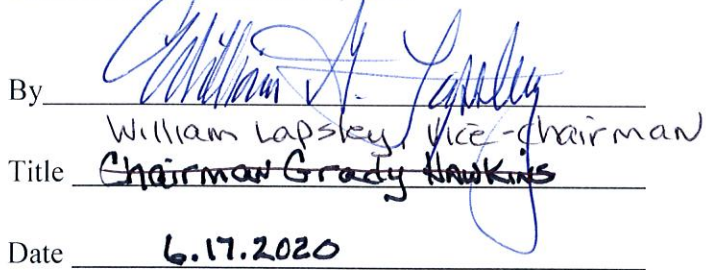 By William G. Lapsley
William Lapsley, Vice-Chairman
Title Chairman Grady Hawkins
Date 6.17.2020